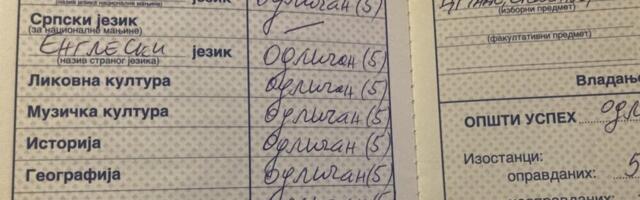 (назив језика националне мањине) одличан (5)
Српски језик
(за националне мањине)
ЕНГЛЕСКИ језик одличан (5)
(назив страног језика)
Ликовна култура одличан (5)
Музичка култура одличан (5)
Историја одличан (5)
Географија одличан (5)
(изборни предмет)
(факултативни предмет)
Владање
ОПШТИ УСПЕХ
Изостанци:
оправданих: 5